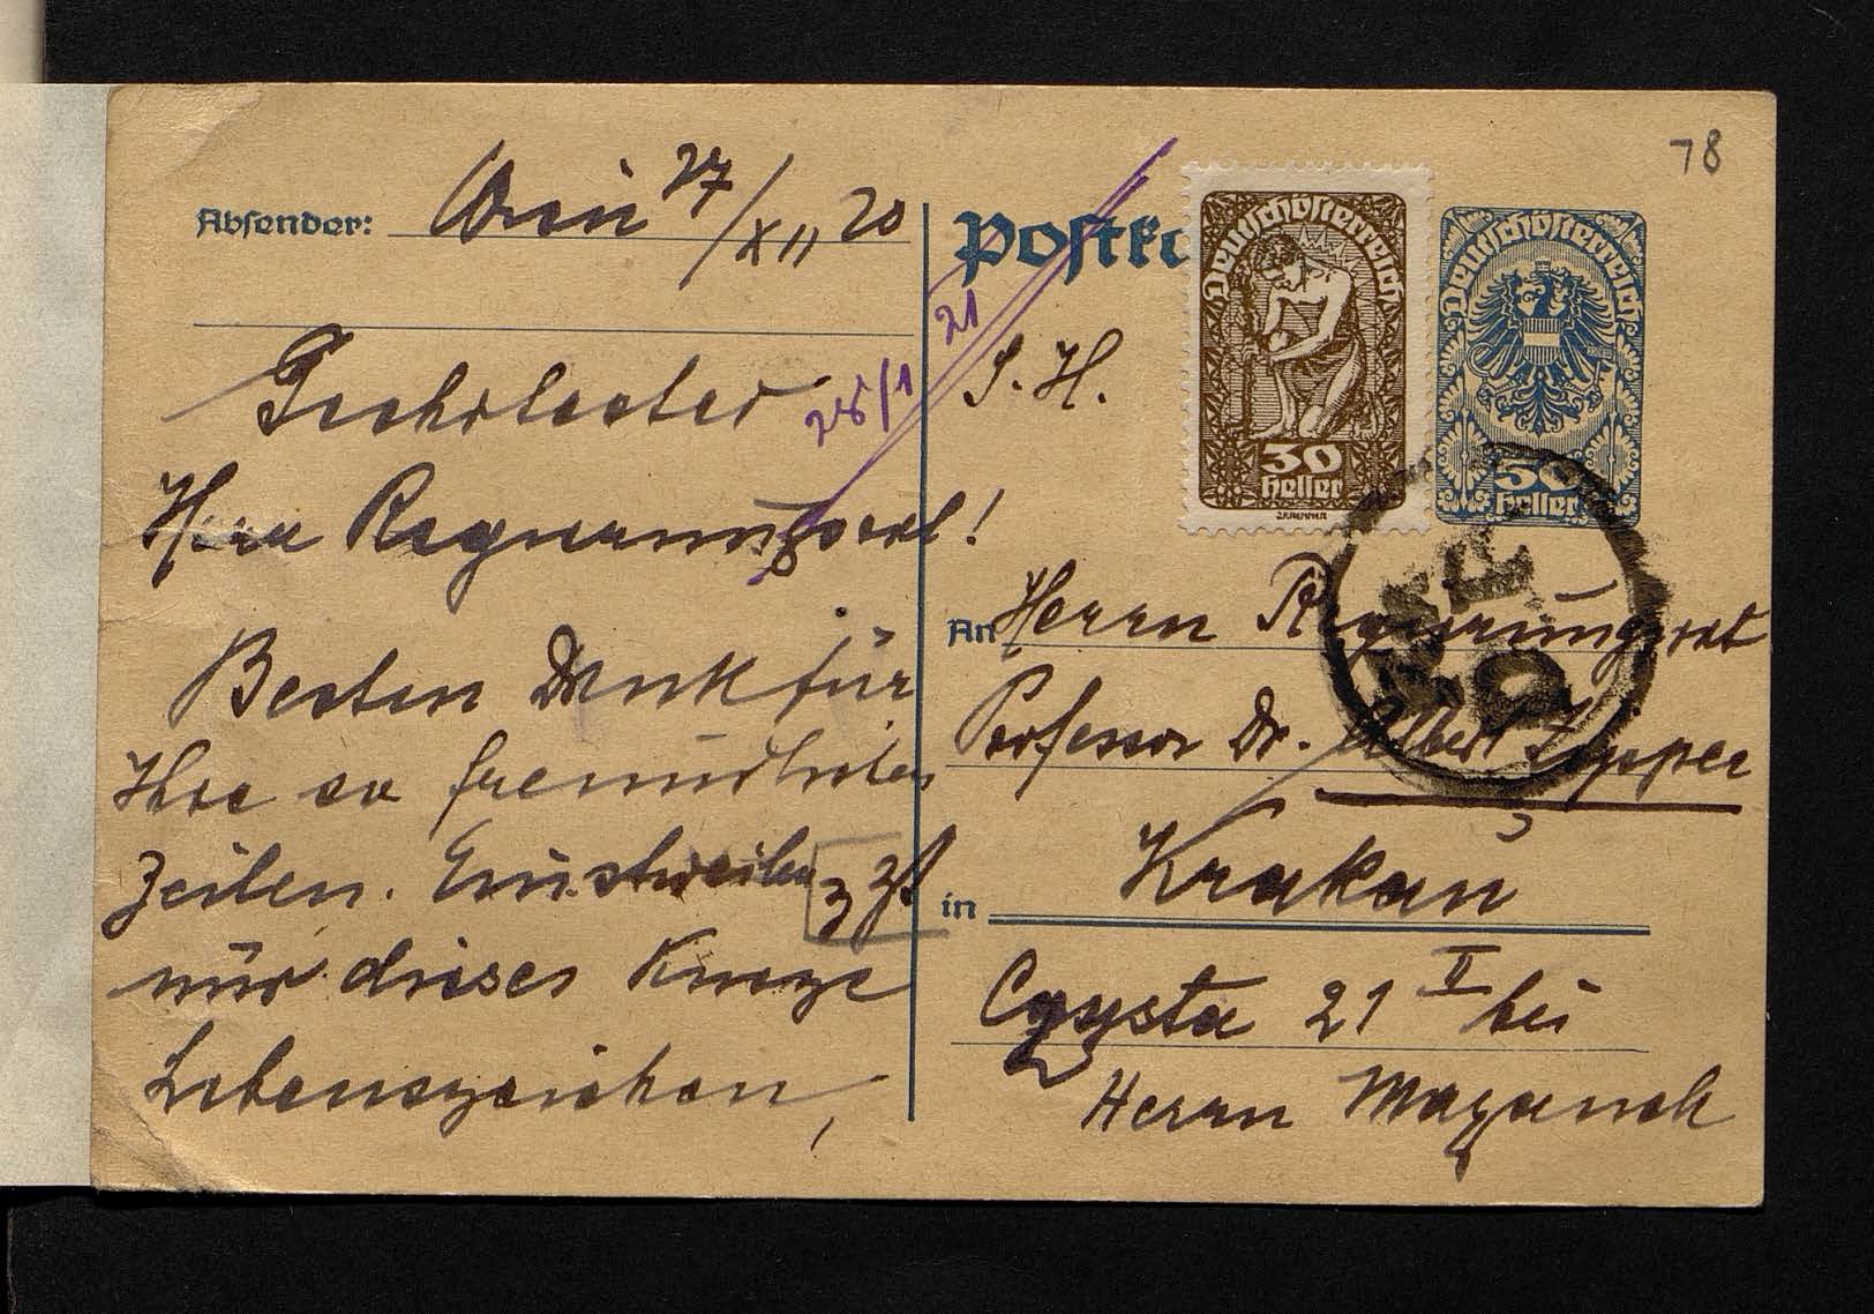 78
Absender: Wien 27/XII 20
Geehrtester
Herr Regierungsrat!
Besten Dank für
Ihre so freundlichen
Zeilen. Einstweilen z Zt
nur dieses kurze
Lebenszeichen,
25/1 21
Postka
S. H.
Deutschösterreich
30
Heller
Deutschösterreich
Heller
An Herrn Regierungsrat
Professor Dr. Albert Zipper
in Krakau
Czysta 21 II bei
Herrn Mazanek